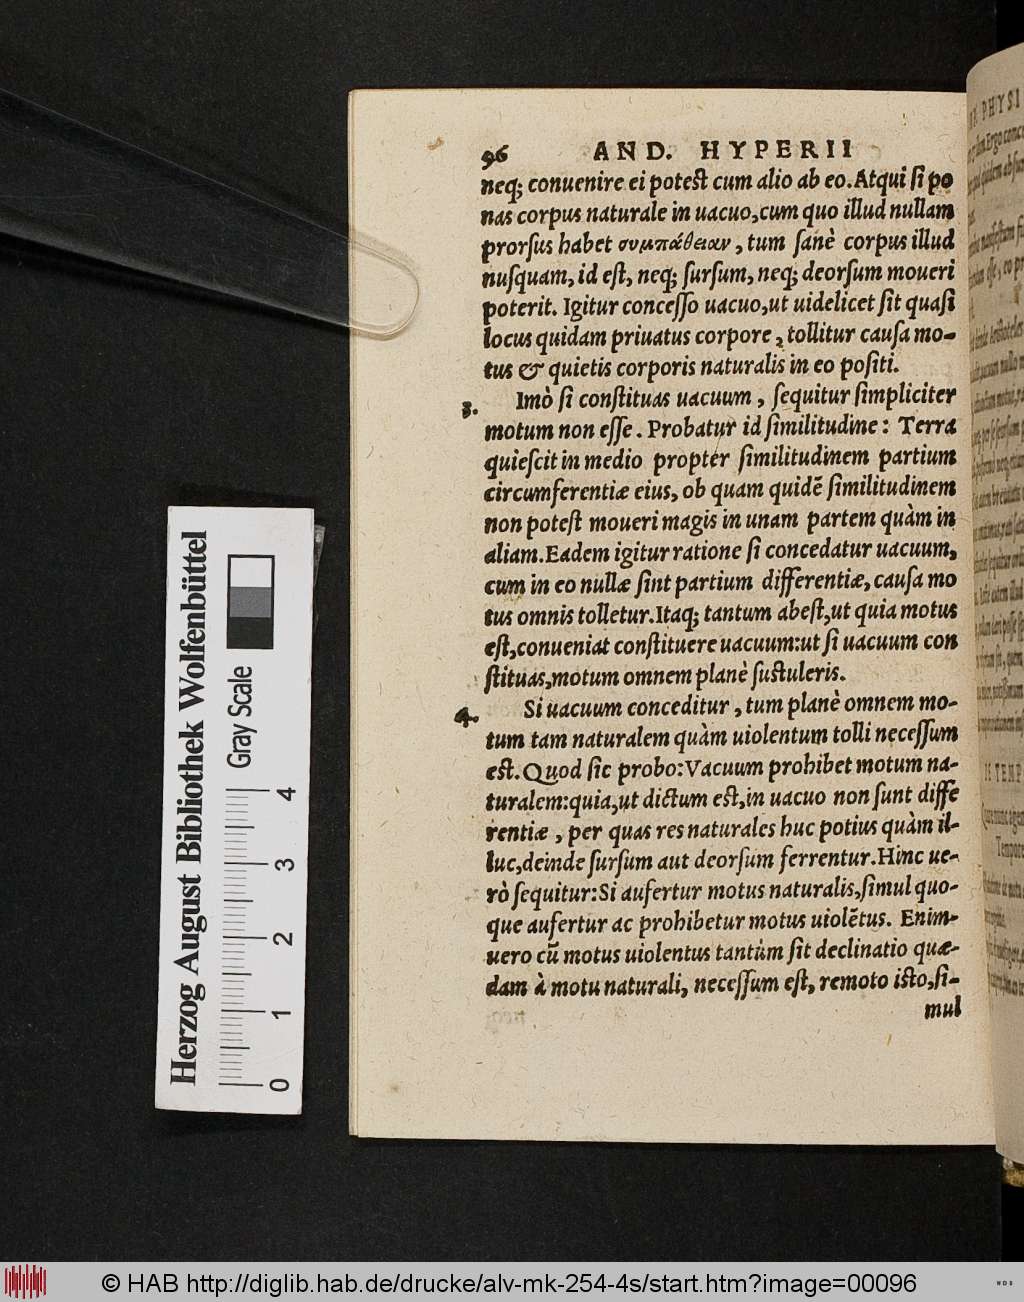 96 AND. HYPERII
neq; conuenire ei potest cum alio ab eo. Atqui si po
nas corpus naturale in uacuo, cum quo illud nullam
prorsus habet συμπάθειαν, tum sanè corpus illud
nusquam, id est, neq; sursum, neq; deorsum moueri
poterit. Igitur concesso uacuo, ut uidelicet sit quasi
locus quidam priuatus corpore, tollitur causa mo-
tus & quietis corporis naturalis in eo positi.
3. Imò si constituas uacuum, sequitur simpliciter
motum non esse. Probatur id similitudine: Terra
quiescit in medio propter similitudinem partium
circumferentiæ eius, ob quam quidē similitudinem
non potest moueri magis in unam partem quàm in
aliam. Eadem igitur ratione si concedatur uacuum,
cum in eo nullæ sint partium differentiæ, causa mo
tus omnis tolletur. Itaq; tantum abest, ut quia motus
est, conueniat constituere uacuum: ut si uacuum con
stituas, motum omnem planè sustuleris.
4. Si uacuum conceditur, tum planè omnem mo-
tum tam naturalem quàm uiolentum tolli necessum
est. Quod sic probo: Vacuum prohibet motum na-
turalem: quia, ut dictum est, in uacuo non sunt diffe
rentiæ, per quas res naturales huc potius quàm il-
luc, deinde sursum aut deorsum ferrentur. Hinc ue-
rò sequitur: Si aufertur motus naturalis, simul quo-
que aufertur ac prohibetur motus uiolētus. Enim-
uero cū motus uiolentus tantùm sit declinatio quæ-
dam à motu naturali, necessum est, remoto isto, si-
mul
Herzog August Bibliothek Wolfenbüttel
Gray Scale
0 1 2 3 4
© HAB http://diglib.hab.de/drucke/alv-mk-254-4s/start.htm?image=00096